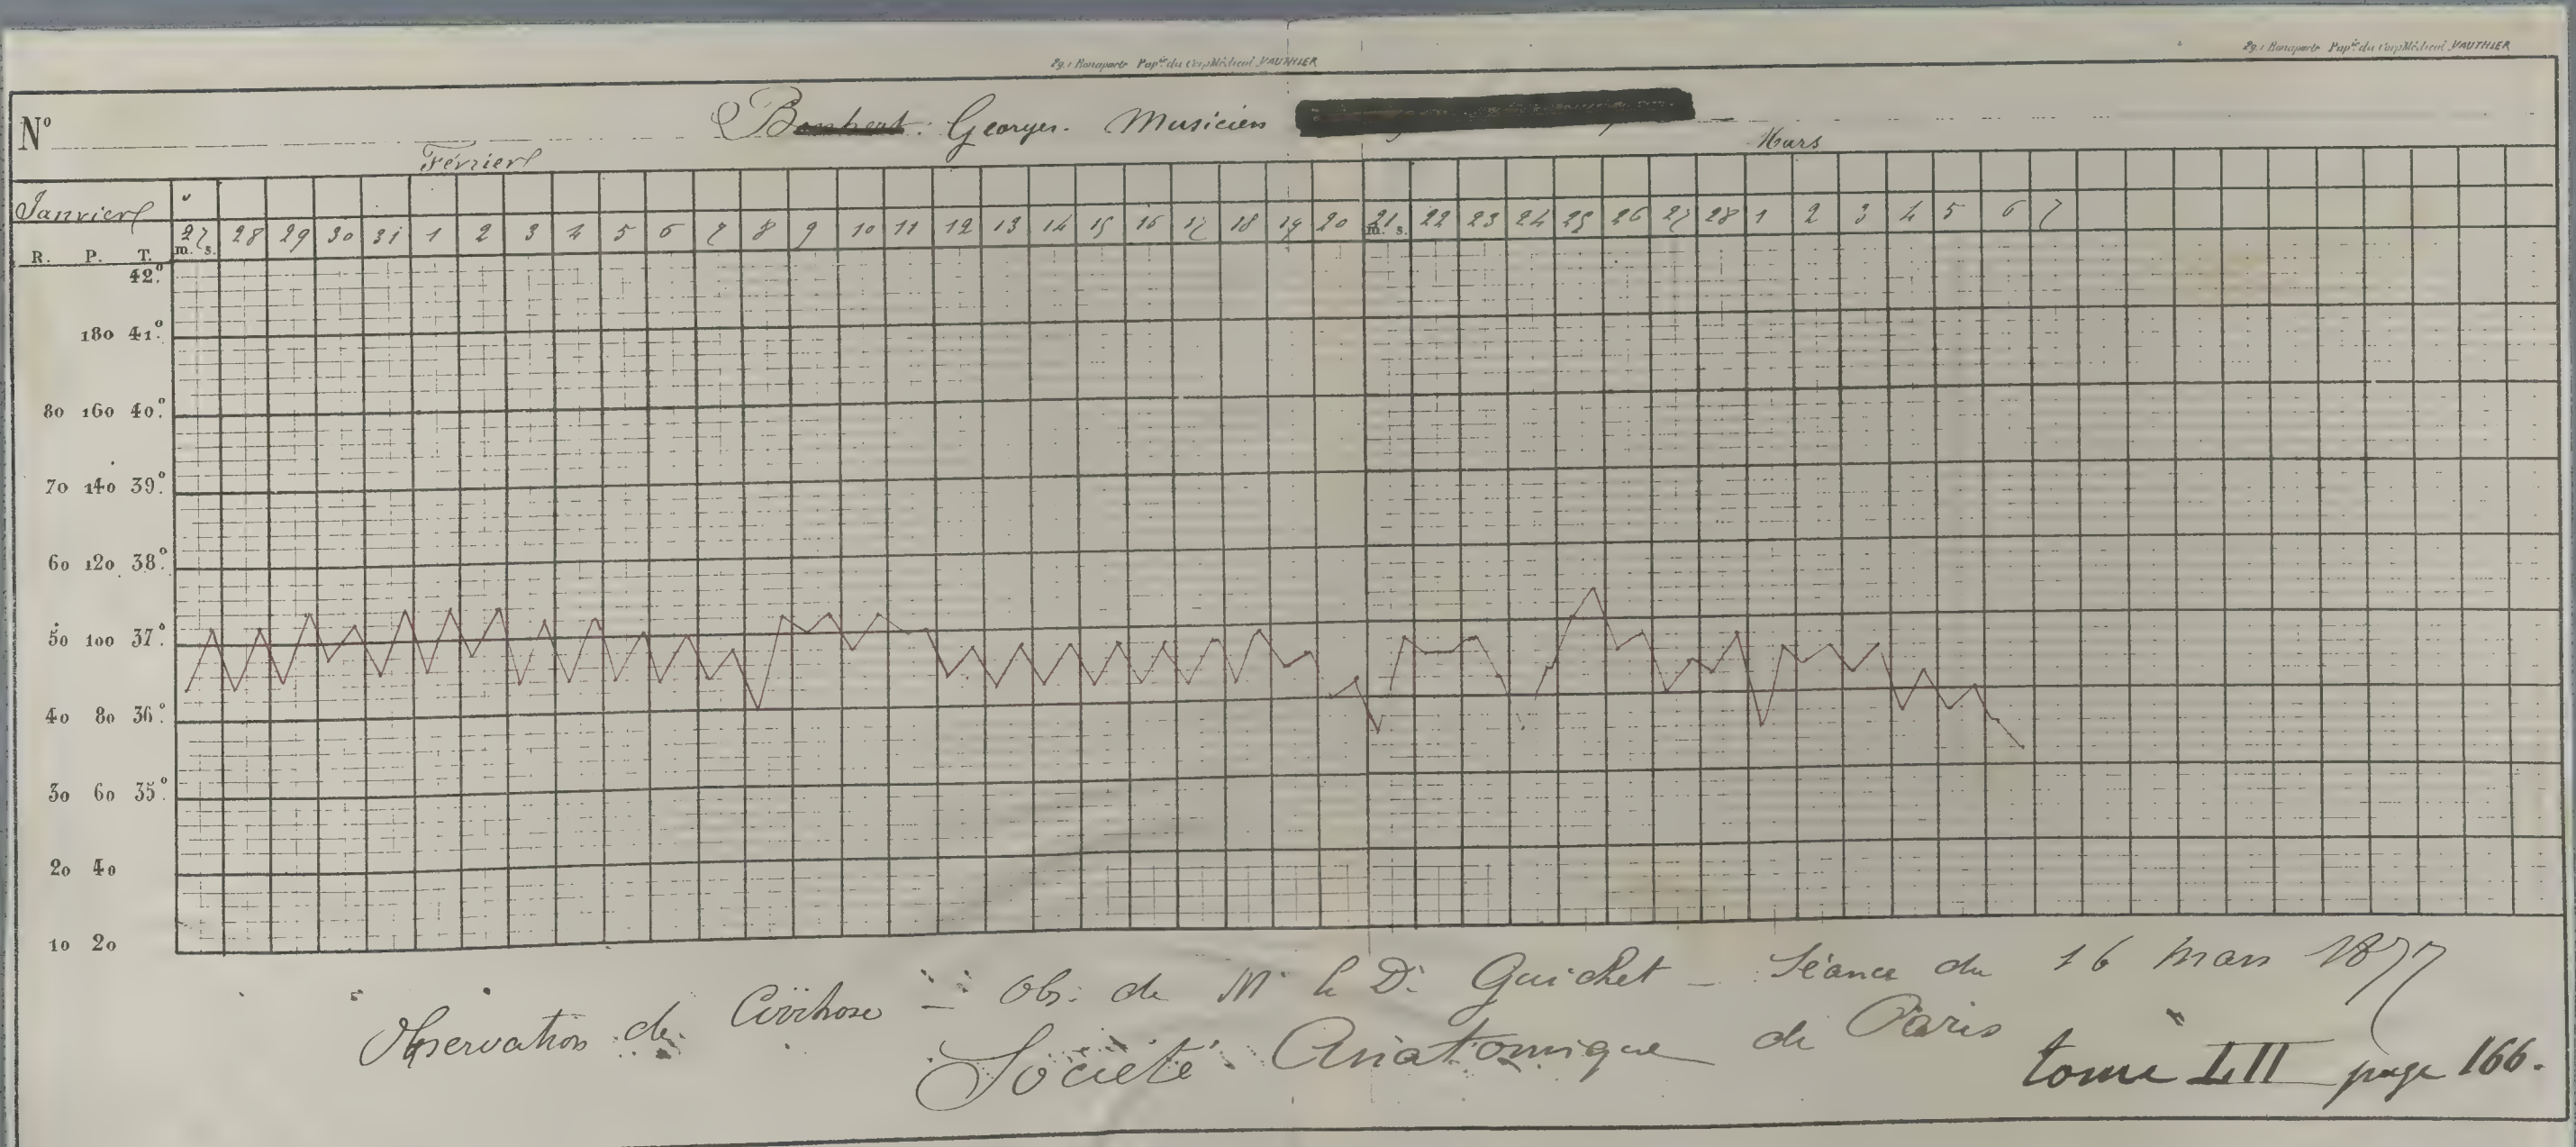 29, r Bonaparte Pap.ie du Corps Médical VAUTHIER
29, r Bonaparte Pap.ie du Corps Médical VAUTHIER
Nº Georges. Musicien
Février Mars
Janvier
27 28 29 30 31 1 2 3 4 5 6 7 8 9 10 11 12 13 14 15 16 17 18 19 20 21 22 23 24 25 26 27 28 1 2 3 4 5 6 7
m. s. m. s.
R. P. T.
42°.
180 41°.
80 160 40°.
70 140 39°.
60 120 38°.
50 100 37°.
40 80 36°.
30 60 35°.
20 40
10 20
Observation de Cirrhose – Obs. de Mr le Dr Guichet – Séance du 16 mars 1877
Société Anatomique de Paris
tome LII page 166.